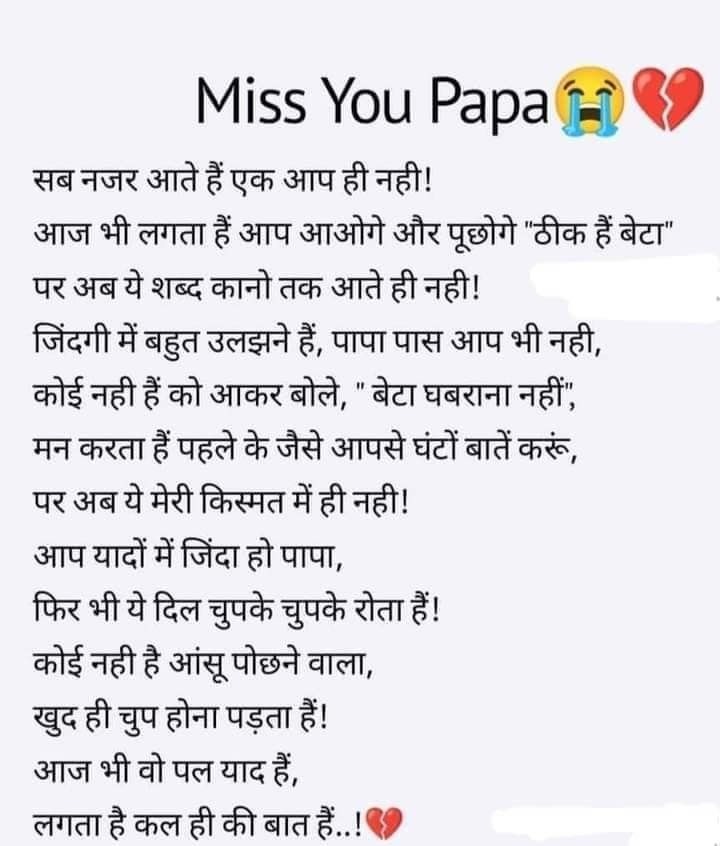 Miss You Papa😭💔
सब नजर आते हैं एक आप ही नही!
आज भी लगता हैं आप आओगे और पूछोगे "ठीक हैं बेटा"
पर अब ये शब्द कानो तक आते ही नही!
जिंदगी में बहुत उलझने हैं, पापा पास आप भी नही,
कोई नही हैं को आकर बोले, " बेटा घबराना नहीं",
मन करता हैं पहले के जैसे आपसे घंटों बातें करूं,
पर अब ये मेरी किस्मत में ही नही!
आप यादों में जिंदा हो पापा,
फिर भी ये दिल चुपके चुपके रोता हैं!
कोई नही है आंसू पोछने वाला,
खुद ही चुप होना पड़ता हैं!
आज भी वो पल याद हैं,
लगता है कल ही की बात हैं..!💔